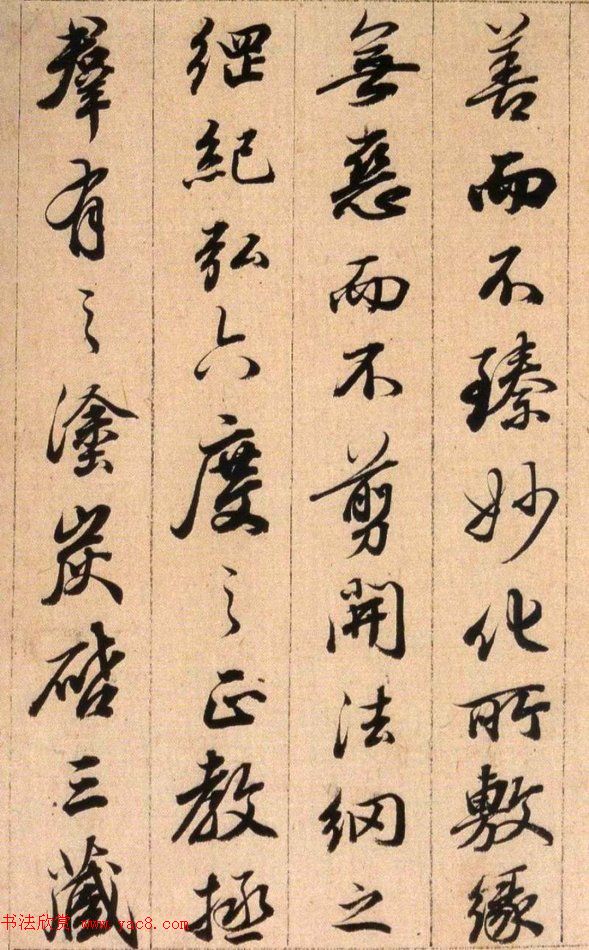 善而不臻妙化所敷緣
無惡而不剪開法網之
綱紀弘六度之正教拯
羣有之塗炭啓三藏
书法欣赏 www.yac8.com